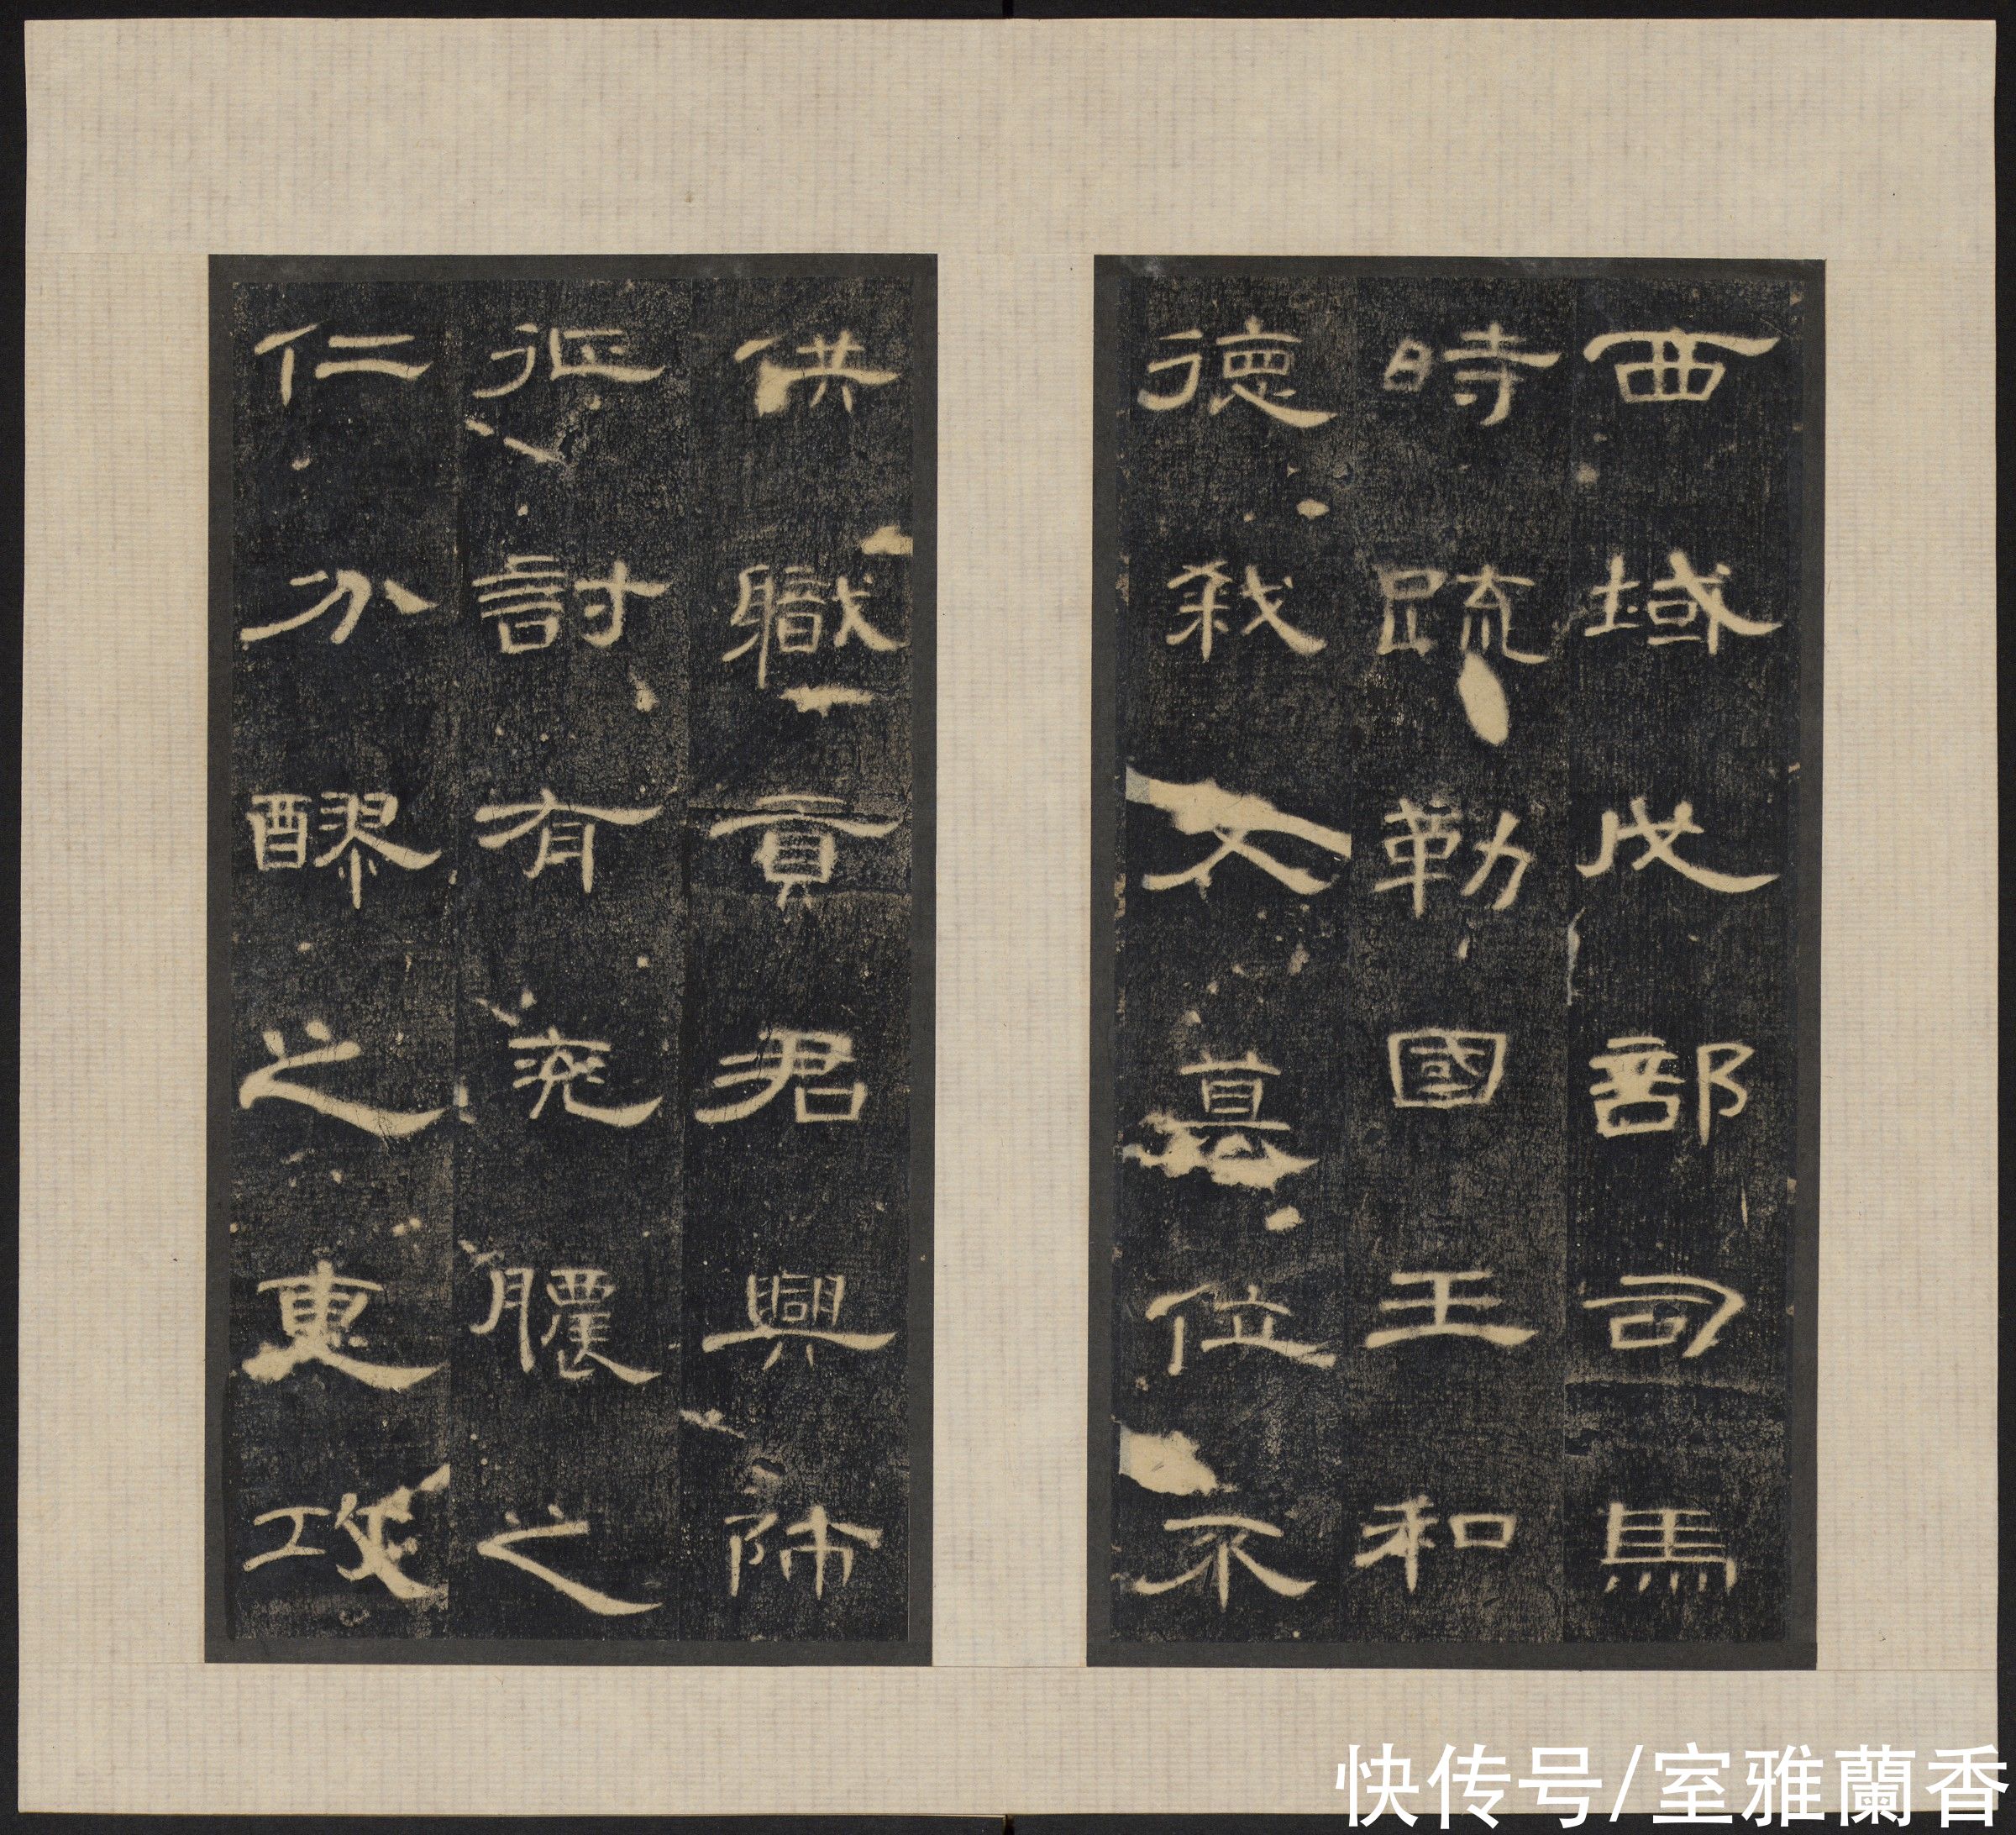 西域戊部司馬
時疏勒國王和
德弒父篡位不
供職貢君興師
征討有兖膿之
仁分醪之惠攻
快传号/室雅蘭香